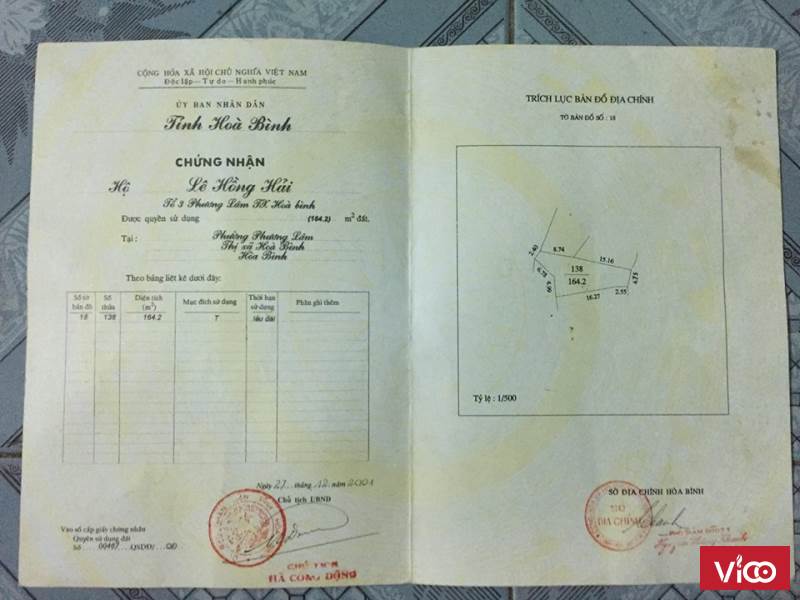 CỘNG HÒA XÃ HỘI CHỦ NGHĨA VIỆT NAM
Độc lập - Tự do - Hạnh phúc
ỦY BAN NHÂN DÂN
Tỉnh Hoà Bình
CHỨNG NHẬN
Hộ Lê Hồng Hải
Tổ 3 Phương Lâm TX Hoà bình
Được quyền sử dụng (164.2) m² đất.
Tại : Phường Phương Lâm
Thị xã Hoà Bình
Hòa Bình
Theo bảng liệt kê dưới đây:
Số tờ bản đồ Số thửa Diện tích (m²) Mục đích sử dụng Thời hạn sử dụng Phần ghi thêm
18 138 164.2 T lâu dài
Ngày 27 tháng 12 năm 2001
Chủ tịch UBND
Vào sổ cấp giấy chứng nhận
Quyền sử dụng đất
Số 00487 QSDĐ/ QĐ
CHỦ TỊCH
HÀ CÔNG DỘNG
TRÍCH LỤC BẢN ĐỒ ĐỊA CHÍNH
TỜ BẢN ĐỒ SỐ : 18
2.40
8.74
15.16
6.78
138
164.2
4.75
6.99
16.27
2.55
Tỷ lệ : 1/500
SỞ ĐỊA CHÍNH HÒA BÌNH
SỞ
ĐỊA CHÍNH
Vico